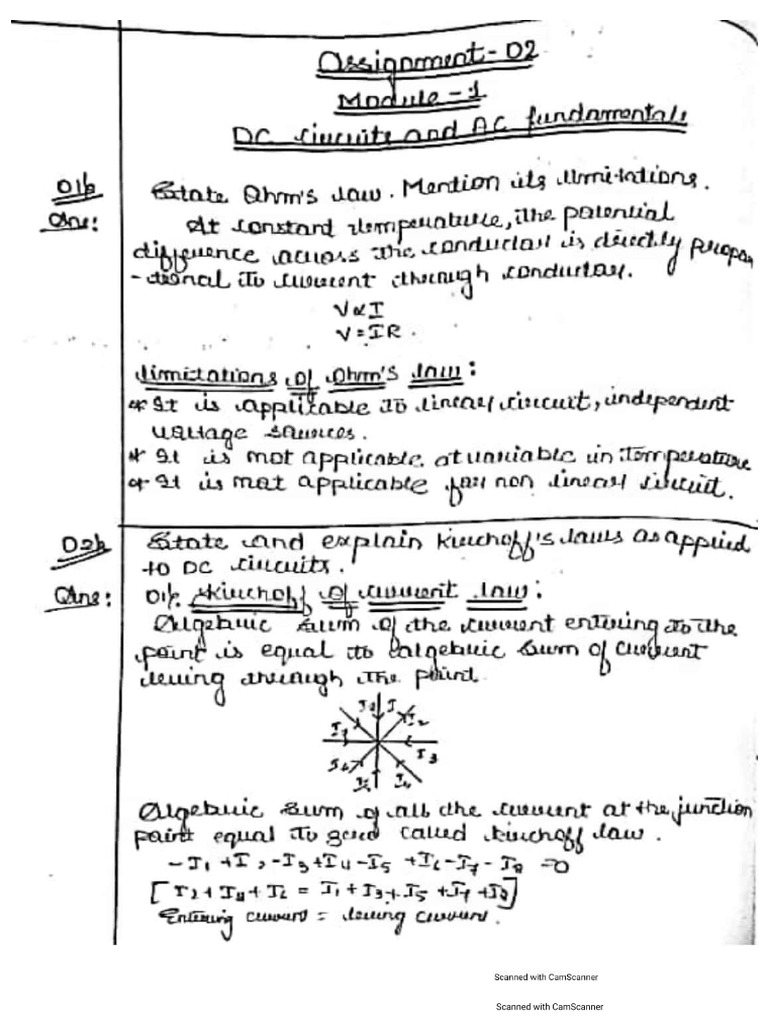 Assignment-02
Module-1
DC circuits and AC fundamentals
01)
State Ohm's law. Mention its limitations.
Ans:
At constant temperature, the potential
difference across the conductor is directly propor
-tional to current through conductor.
V∝I
V=IR.
limitations of Ohm's law:
* It is applicable to linear circuit, independent
voltage sources.
* It is not applicable at variable in temperature
* It is not applicable for non linear circuit.
02)
State and explain Kirchoff's laws as applied
to DC circuits.
Ans:
01). Kirchoff of current law:
Algebric sum of the current entering to the
point is equal to algebric sum of current
leving through the point.
I8 I1
I2
I7
I3
I6
I5 I4
Algebric sum of all the current at the junction
point equal to zero called kirchoff law.
-I1 +I2 -I3+I4-I5 +I6-I7-I8 =0
[I2+I4+I6 = I1+I3+I5+I7+I8]
Entering current = leving current.
Scanned with CamScanner
Scanned with CamScanner